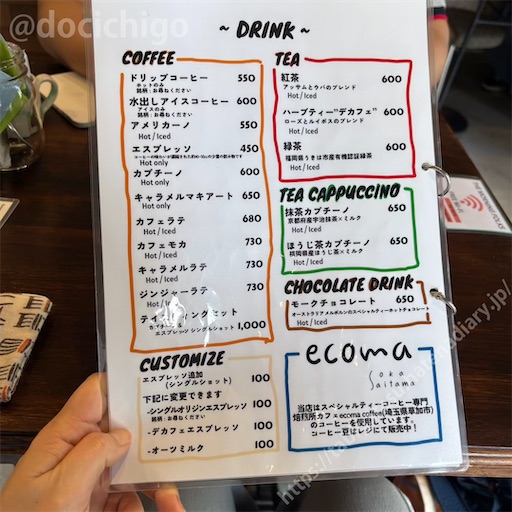 @docichigo
~ DRINK ~
COFFEE
ドリップコーヒー 550
ホットのみ
銘柄：お尋ねください
水出しアイスコーヒー 600
アイスのみ
銘柄：お尋ねください
アメリカーノ 550
Hot / Iced
エスプレッソ 450
Hot only
カプチーノ 600
Hot only
キャラメルマキアート 650
Hot only
カフェラテ 680
Hot / Iced
カフェモカ 730
Hot / Iced
キャラメルラテ 730
Hot / Iced
ジンジャーラテ 730
Hot / Iced
テイスティングセット 1,000
エスプレッソ シングルショット
CUSTOMIZE
エスプレッソ追加 100
(シングルショット)
下記に変更できます
-シングルオリジンエスプレッソ 100
銘柄：お尋ねください
-デカフェエスプレッソ 100
-オーツミルク 100
TEA
紅茶 600
アッサムとウバのブレンド
Hot / Iced
ハーブティー"デカフェ" 600
ローズとルイボスのブレンド
Hot / Iced
緑茶 600
福岡県うきは市産有機認証緑茶
Hot / Iced
TEA CAPPUCCINO
抹茶カプチーノ 650
京都府産宇治抹茶×ミルク
Hot / Iced
ほうじ茶カプチーノ 650
福岡県産ほうじ茶×ミルク
Hot / Iced
CHOCOLATE DRINK
モークチョコレート 650
オーストラリアメルボルンのスペシャルティーホットチョコレート
Hot / Iced
ecoma
Soka
Saitama
当店はスペシャルティーコーヒー専門
焙煎所カフェecoma coffee(埼玉県草加市)
のコーヒーを使用しています。
コーヒー豆はレジにて販売中！